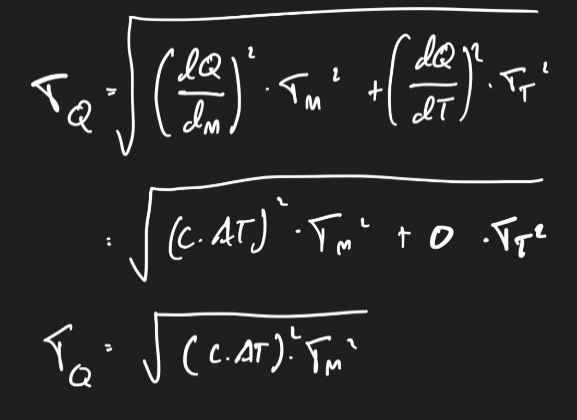 σ_Q = √((dQ/dM)² · σ_M² + (dQ/dT)² · σ_T²)
= √((C·ΔT)² · σ_M² + 0 · σ_T²)
σ_Q = √((C·ΔT)² · σ_M²)